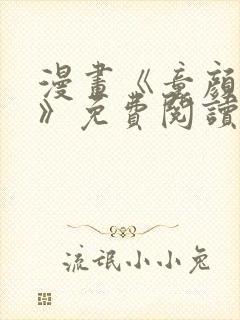 漫畫《童顏
》免費閱讀
流氓小小兔